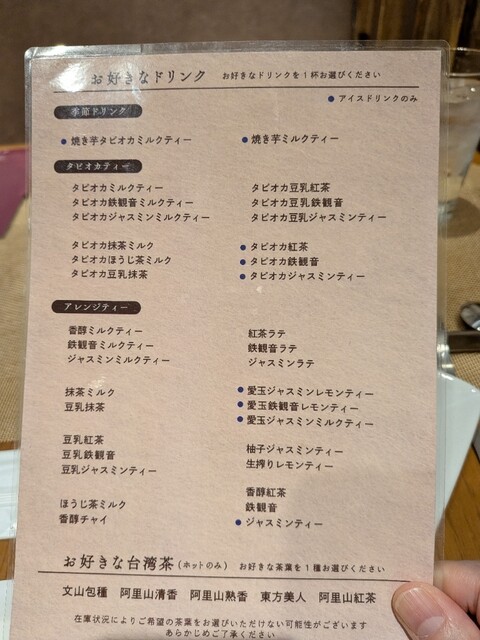 お好きなドリンク お好きなドリンクを1杯お選びください
● アイスドリンクのみ
季節ドリンク
● 焼き芋タピオカミルクティー
● 焼き芋ミルクティー
タピオカティー
タピオカミルクティー
タピオカ鉄観音ミルクティー
タピオカジャスミンミルクティー
タピオカ抹茶ミルク
タピオカほうじ茶ミルク
タピオカ豆乳抹茶
タピオカ豆乳紅茶
タピオカ豆乳鉄観音
タピオカ豆乳ジャスミンティー
● タピオカ紅茶
● タピオカ鉄観音
● タピオカジャスミンティー
アレンジティー
香醇ミルクティー
鉄観音ミルクティー
ジャスミンミルクティー
抹茶ミルク
豆乳抹茶
豆乳紅茶
豆乳鉄観音
豆乳ジャスミンティー
ほうじ茶ミルク
香醇チャイ
紅茶ラテ
鉄観音ラテ
ジャスミンラテ
● 愛玉ジャスミンレモンティー
● 愛玉鉄観音レモンティー
● 愛玉ジャスミンミルクティー
柚子ジャスミンティー
生搾りレモンティー
香醇紅茶
鉄観音
● ジャスミンティー
お好きな台湾茶(ホットのみ) お好きな茶葉を1種お選びください
文山包種 阿里山清香 阿里山熟香 東方美人 阿里山紅茶
在庫状況によりご希望の茶葉をお選びいただけない可能性がございます
あらかじめご了承ください